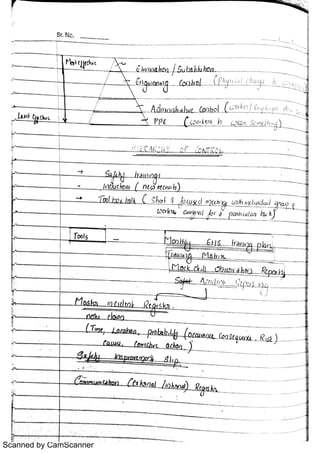 Sr. No.
Most effective
Elimination / Substitution.
Engineering Control (Physical change
Administrative Control (
Least Effective
PPE (workers to wear something)
HIERARCHY OF CONTROL
→ Safety trainings
→ Induction (new recruits)
→ Tool box talk (Short & focused meeting with individual group of
workers assigned for a particular task)
Tools
Monthly EHS training plan
Training Matrix
Mock drill Observation Reports
Safety Accident Reporting
Master incident Register.
(Time, Location, probability (occurrence, Consequence, Risk)
Cause, Corrective action.)
Safety improvement Slip.
Communication (External / internal) Register
Scanned by CamScanner